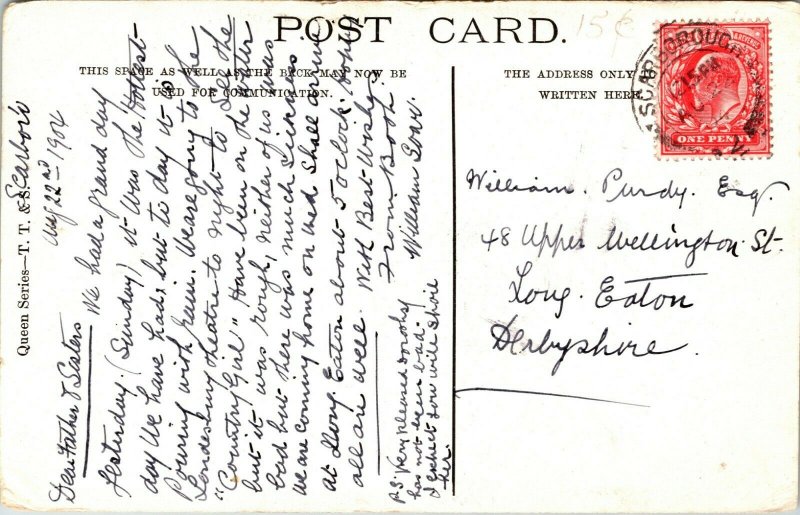 POST CARD.
15¢
THIS SPACE AS WELL AS THE BACK MAY NOW BE
USED FOR COMMUNICATION.
THE ADDRESS ONLY
WRITTEN HERE
SCARBOROUGH
15 PM
ONE PENNY
Queen Series—T. T. & S.
Scarboro
Aug 22nd 1904
Dear Father & Sisters
We had a grand day
Yesterday (Sunday) it was the Hottest
day We have had, but to day it is
Pouring with rain. We are going to the
Londesboro theatre to night to See the
"Country Girl" Have been on the Water
but it was rough, neither of us was
bad but there was much Sickness
we are coming home on Wed Shall arrive
at Long Eaton about 5 oclock,
all are well. With Best Wishes
From Both.
William Soar.
P.S. Very pleased Dorothy
has not been bad.
I expect You will Shoie
her.
William. Purdy. Esq.
48 Upper Wellington St.
Long. Eaton
Derbyshire.